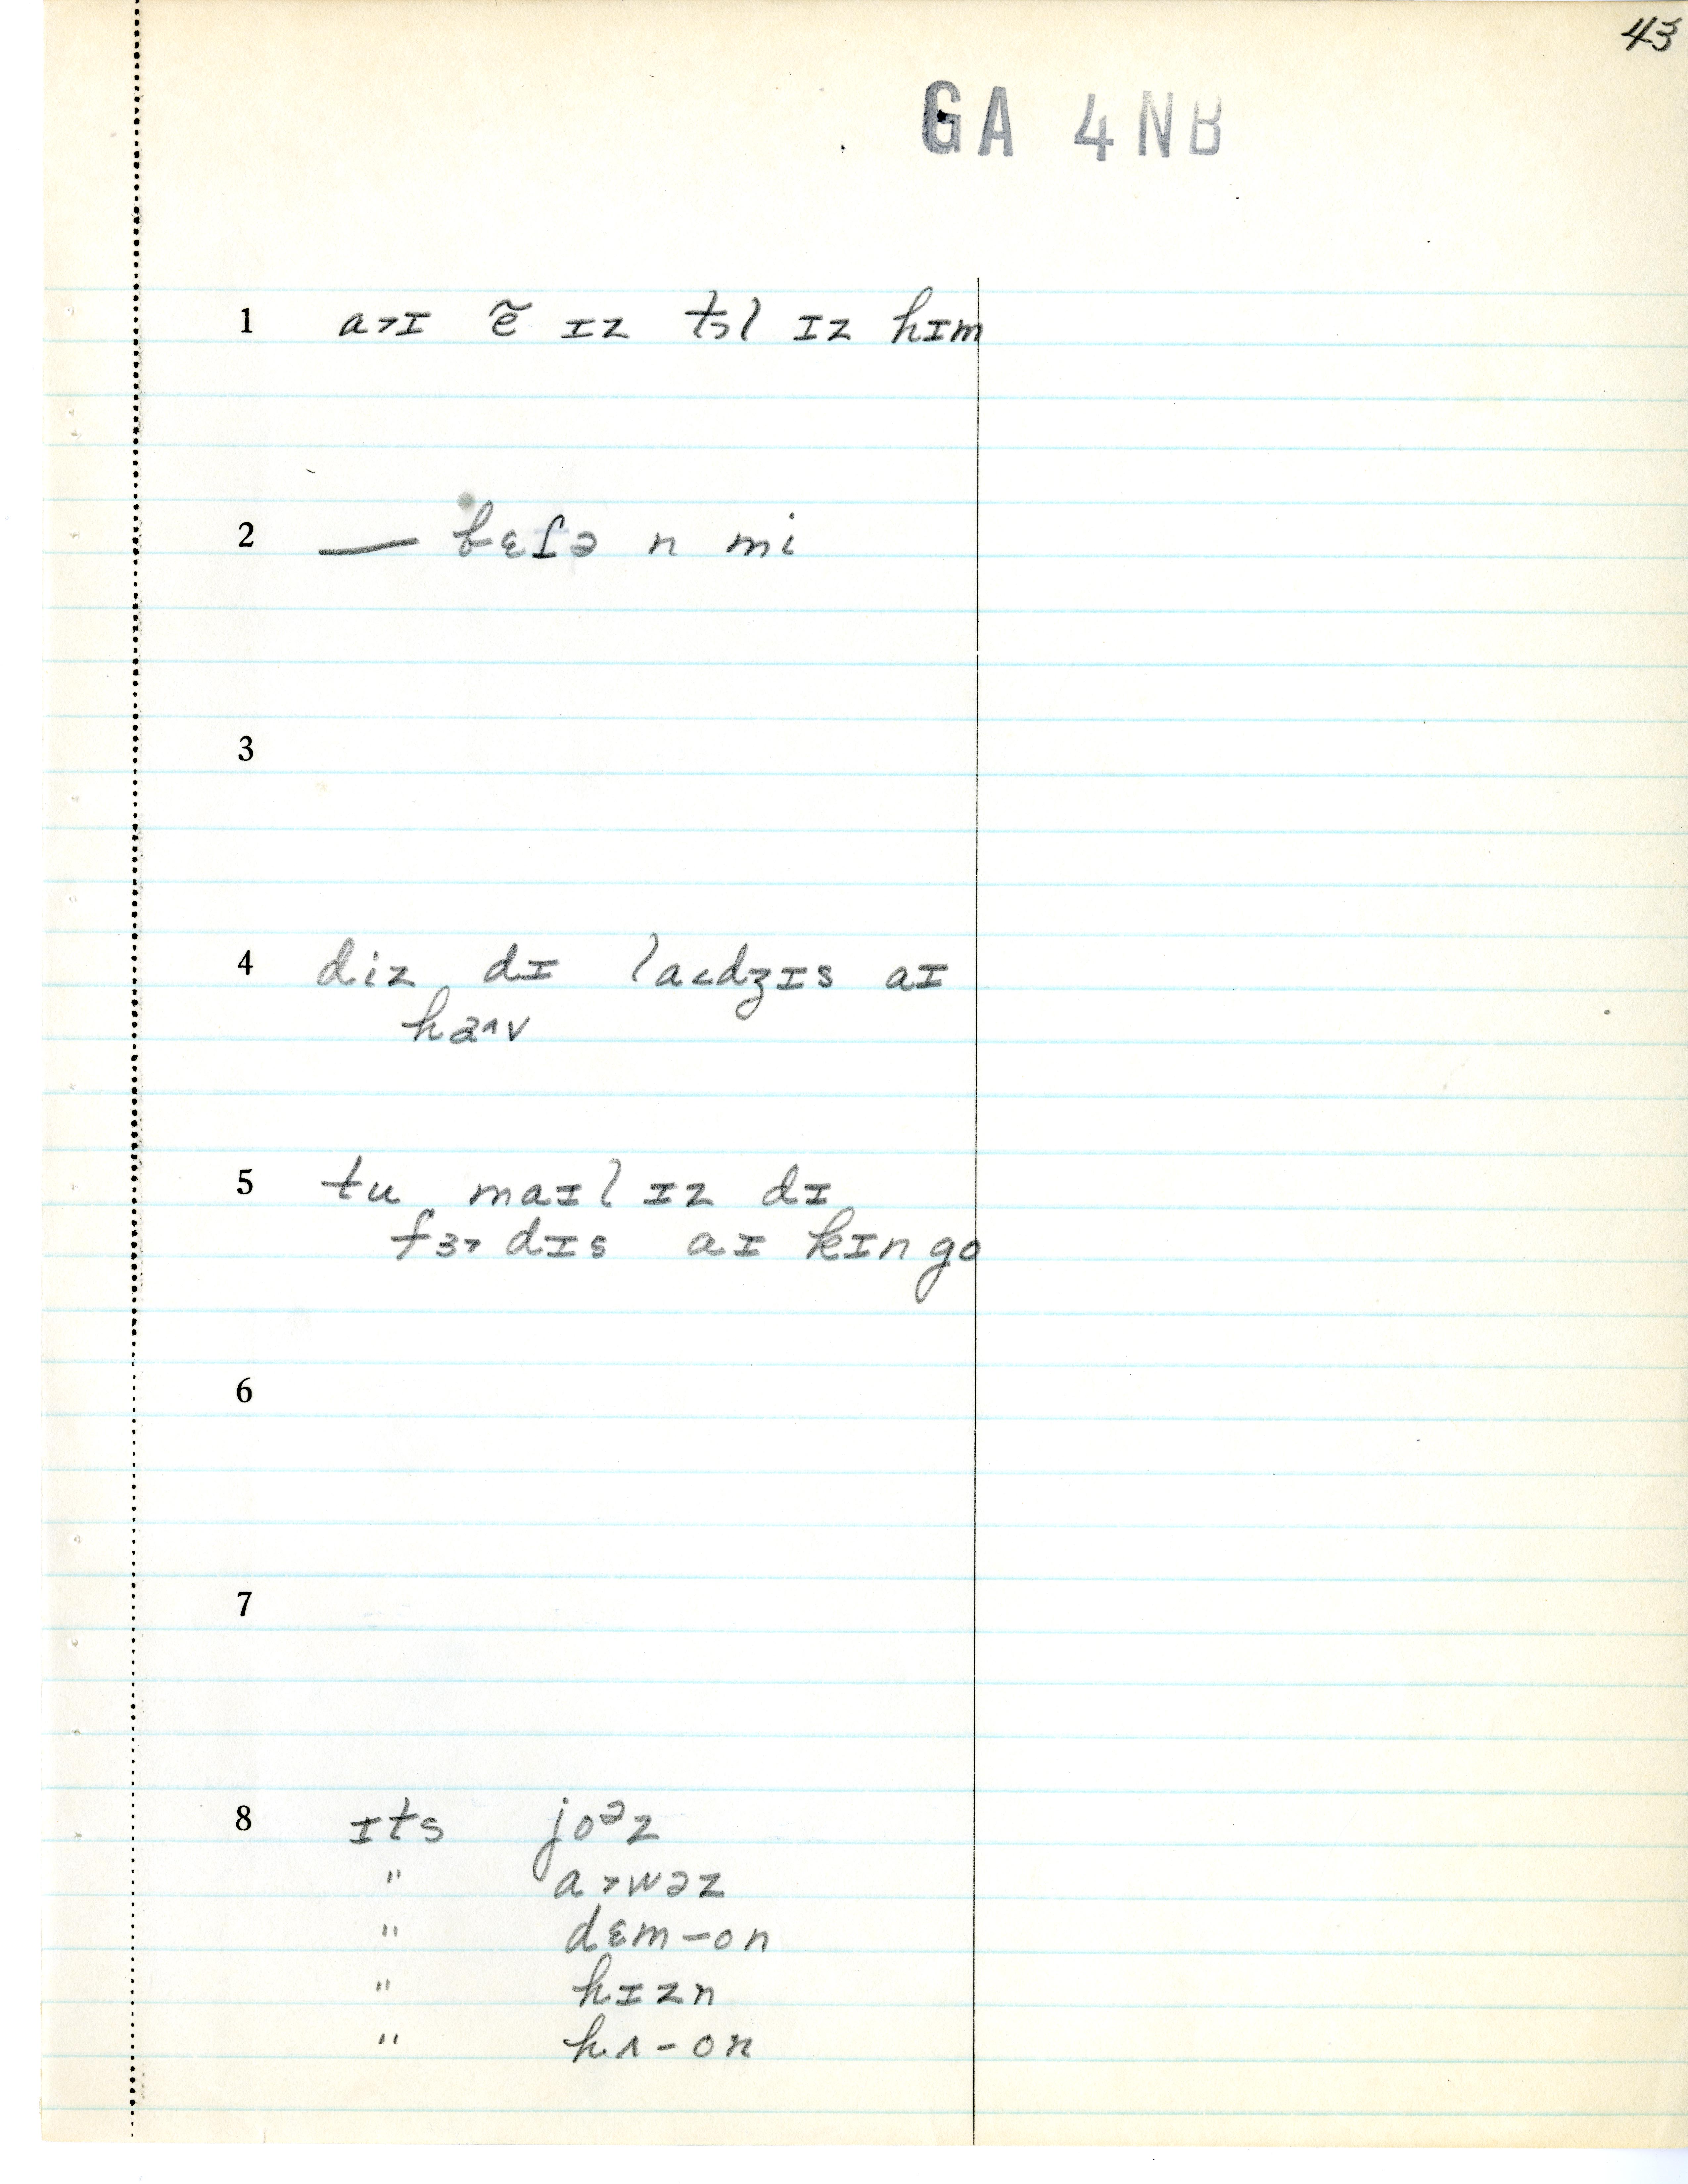 43
GA 4NB
1 a˃ɪ ẽ ɪz tɔl ɪz hɪm
2 — bɛfə n mi
3
4 diz dɪ la˂dʒɪs aɪ
ha^v
5 tu maɪl ɪz dɪ
fɜ˃dɪs aɪ kɪn go
6
7
8 ɪts joᵊz
" a˃wəz
" dɛm-on
" hɪzn
" hʌ-on